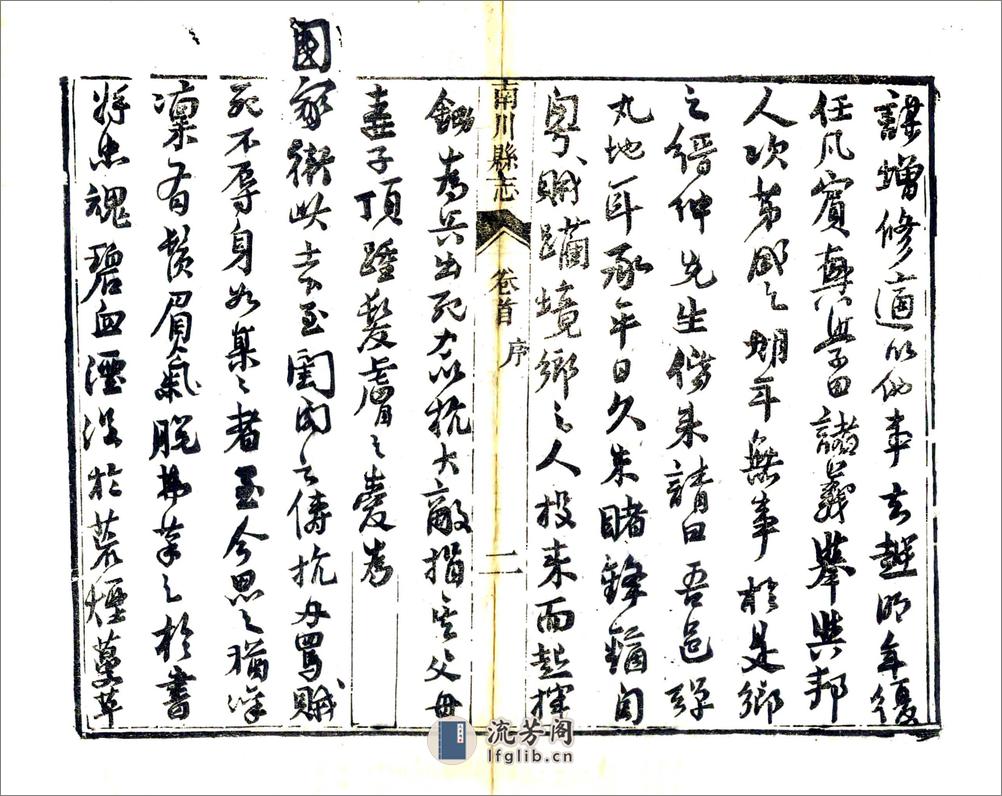 謀增修適以他事去越明年復
任凡賓興學田諸義舉與邦
人次第成之朔年無事於是鄉
之縉紳先生偕來請曰吾邑彈
丸地耳承平日久未睹鋒鏑自
粵賊躪境鄉之人投耒而起揮
鋤為兵出死力以抗大敵捐其父母
妻子頂踵髮膚之愛為
國家衛此去至閨閣之儔抗刃罵賊
死不辱身如某某者至今思之猶凜
凜有鬚眉氣脫弗筆之於書
將忠魂碧血湮沒於荒煙蔓草
南川縣志
卷首
序
二
流芳阁
lfglib.cn